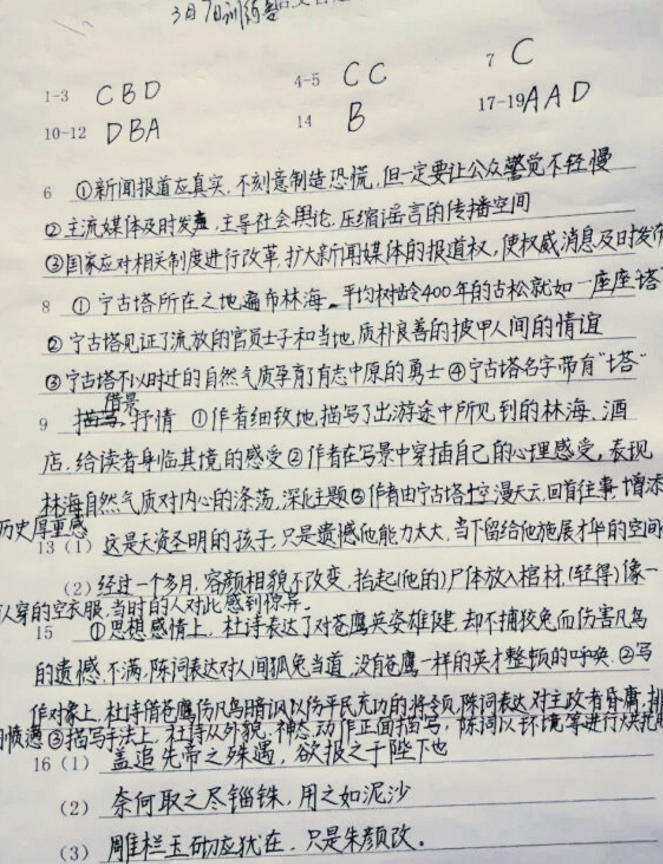 3月7日训练卷
1-3 CBD 4-5 CC 7 C
10-12 DBA 14 B 17-19 AAD
6 ①新闻报道应真实,不刻意制造恐慌,但一定要让公众警觉不轻慢
②主流媒体及时发声,主导社会舆论,压缩谣言的传播空间
③国家应对相关制度进行改革,扩大新闻媒体的报道权,使权威消息及时发布
8 ①宁古塔所在之地遍布林海。平均树龄400年的古松就如一座座"塔
②宁古塔见证了流放的官员士子和当地,质朴良善的披甲人间的情谊
③宁古塔不以时迁的自然气质孕育了有志中原的勇士④宁古塔名字带有"塔"
9 借景抒情 ①作者细致地描写了出游途中所见到的林海、酒
店,给读者身临其境的感受②作者在写景中穿插自己的心理感受,表现
林海自然气质对内心的涤荡,深化主题③作者由宁古塔时空漫天云,回首往事,增添
历史厚重感
13(1)这是天资圣明的孩子,只是遗憾他能力太大,当下留给他施展才华的空间
(2)经过一个多月,容颜相貌不改变,抬起(他的)尸体放入棺材,(轻得)像一
人穿的空衣服,当时的人对此感到惊异。
15 ①思想感情上,杜诗表达了对苍鹰英姿雄健,却不捕狡兔而伤害凡鸟
的遗憾,不满,陈词表达对人间狐兔当道,没有苍鹰一样的英才整顿的呼唤.②写
作对象上,杜诗借苍鹰伤凡鸟暗讽以伤平民充功的将领,陈词表达对主政者昏庸,排
的愤懑③描写手法上,杜诗从外貌、神态动作正面描写,陈词以环境等进行烘托
16(1)盖追先帝之殊遇,欲报之于陛下也
(2)奈何取之尽锱铢,用之如泥沙
(3)雕栏玉砌应犹在,只是朱颜改。